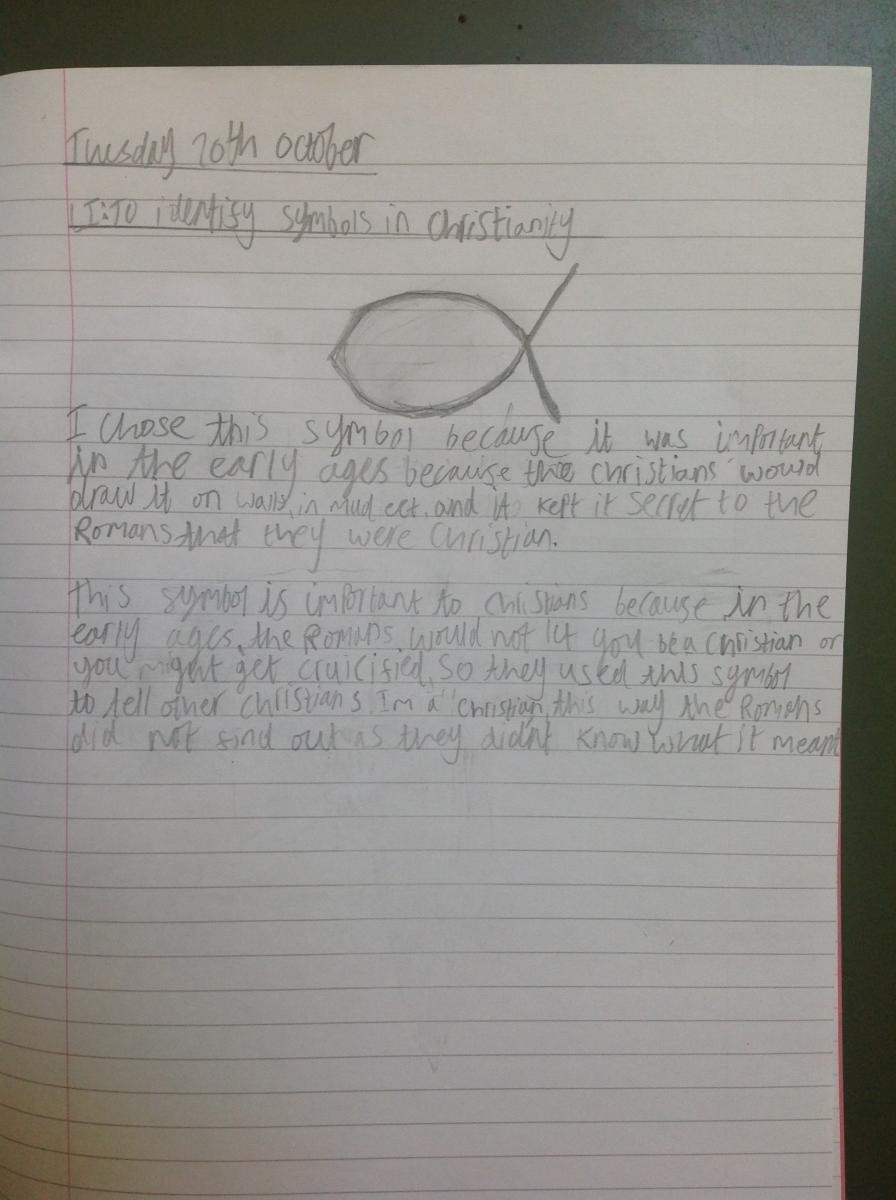 Tuesday 20th October
LI:TO identify symbols in Christianity
I Chose this symbol because it was important
in the early ages because the christians would
draw it on walls, in mud ect. and it kept it secret to the
Romans that they were Christian.
This symbol is important to christians because in the
early ages, the Romans would not let you be a christian or
you might get cruicified, so they used this symbol
to tell other christians Im a "christian, this way the Romans
did not find out as they didn't know what it meant